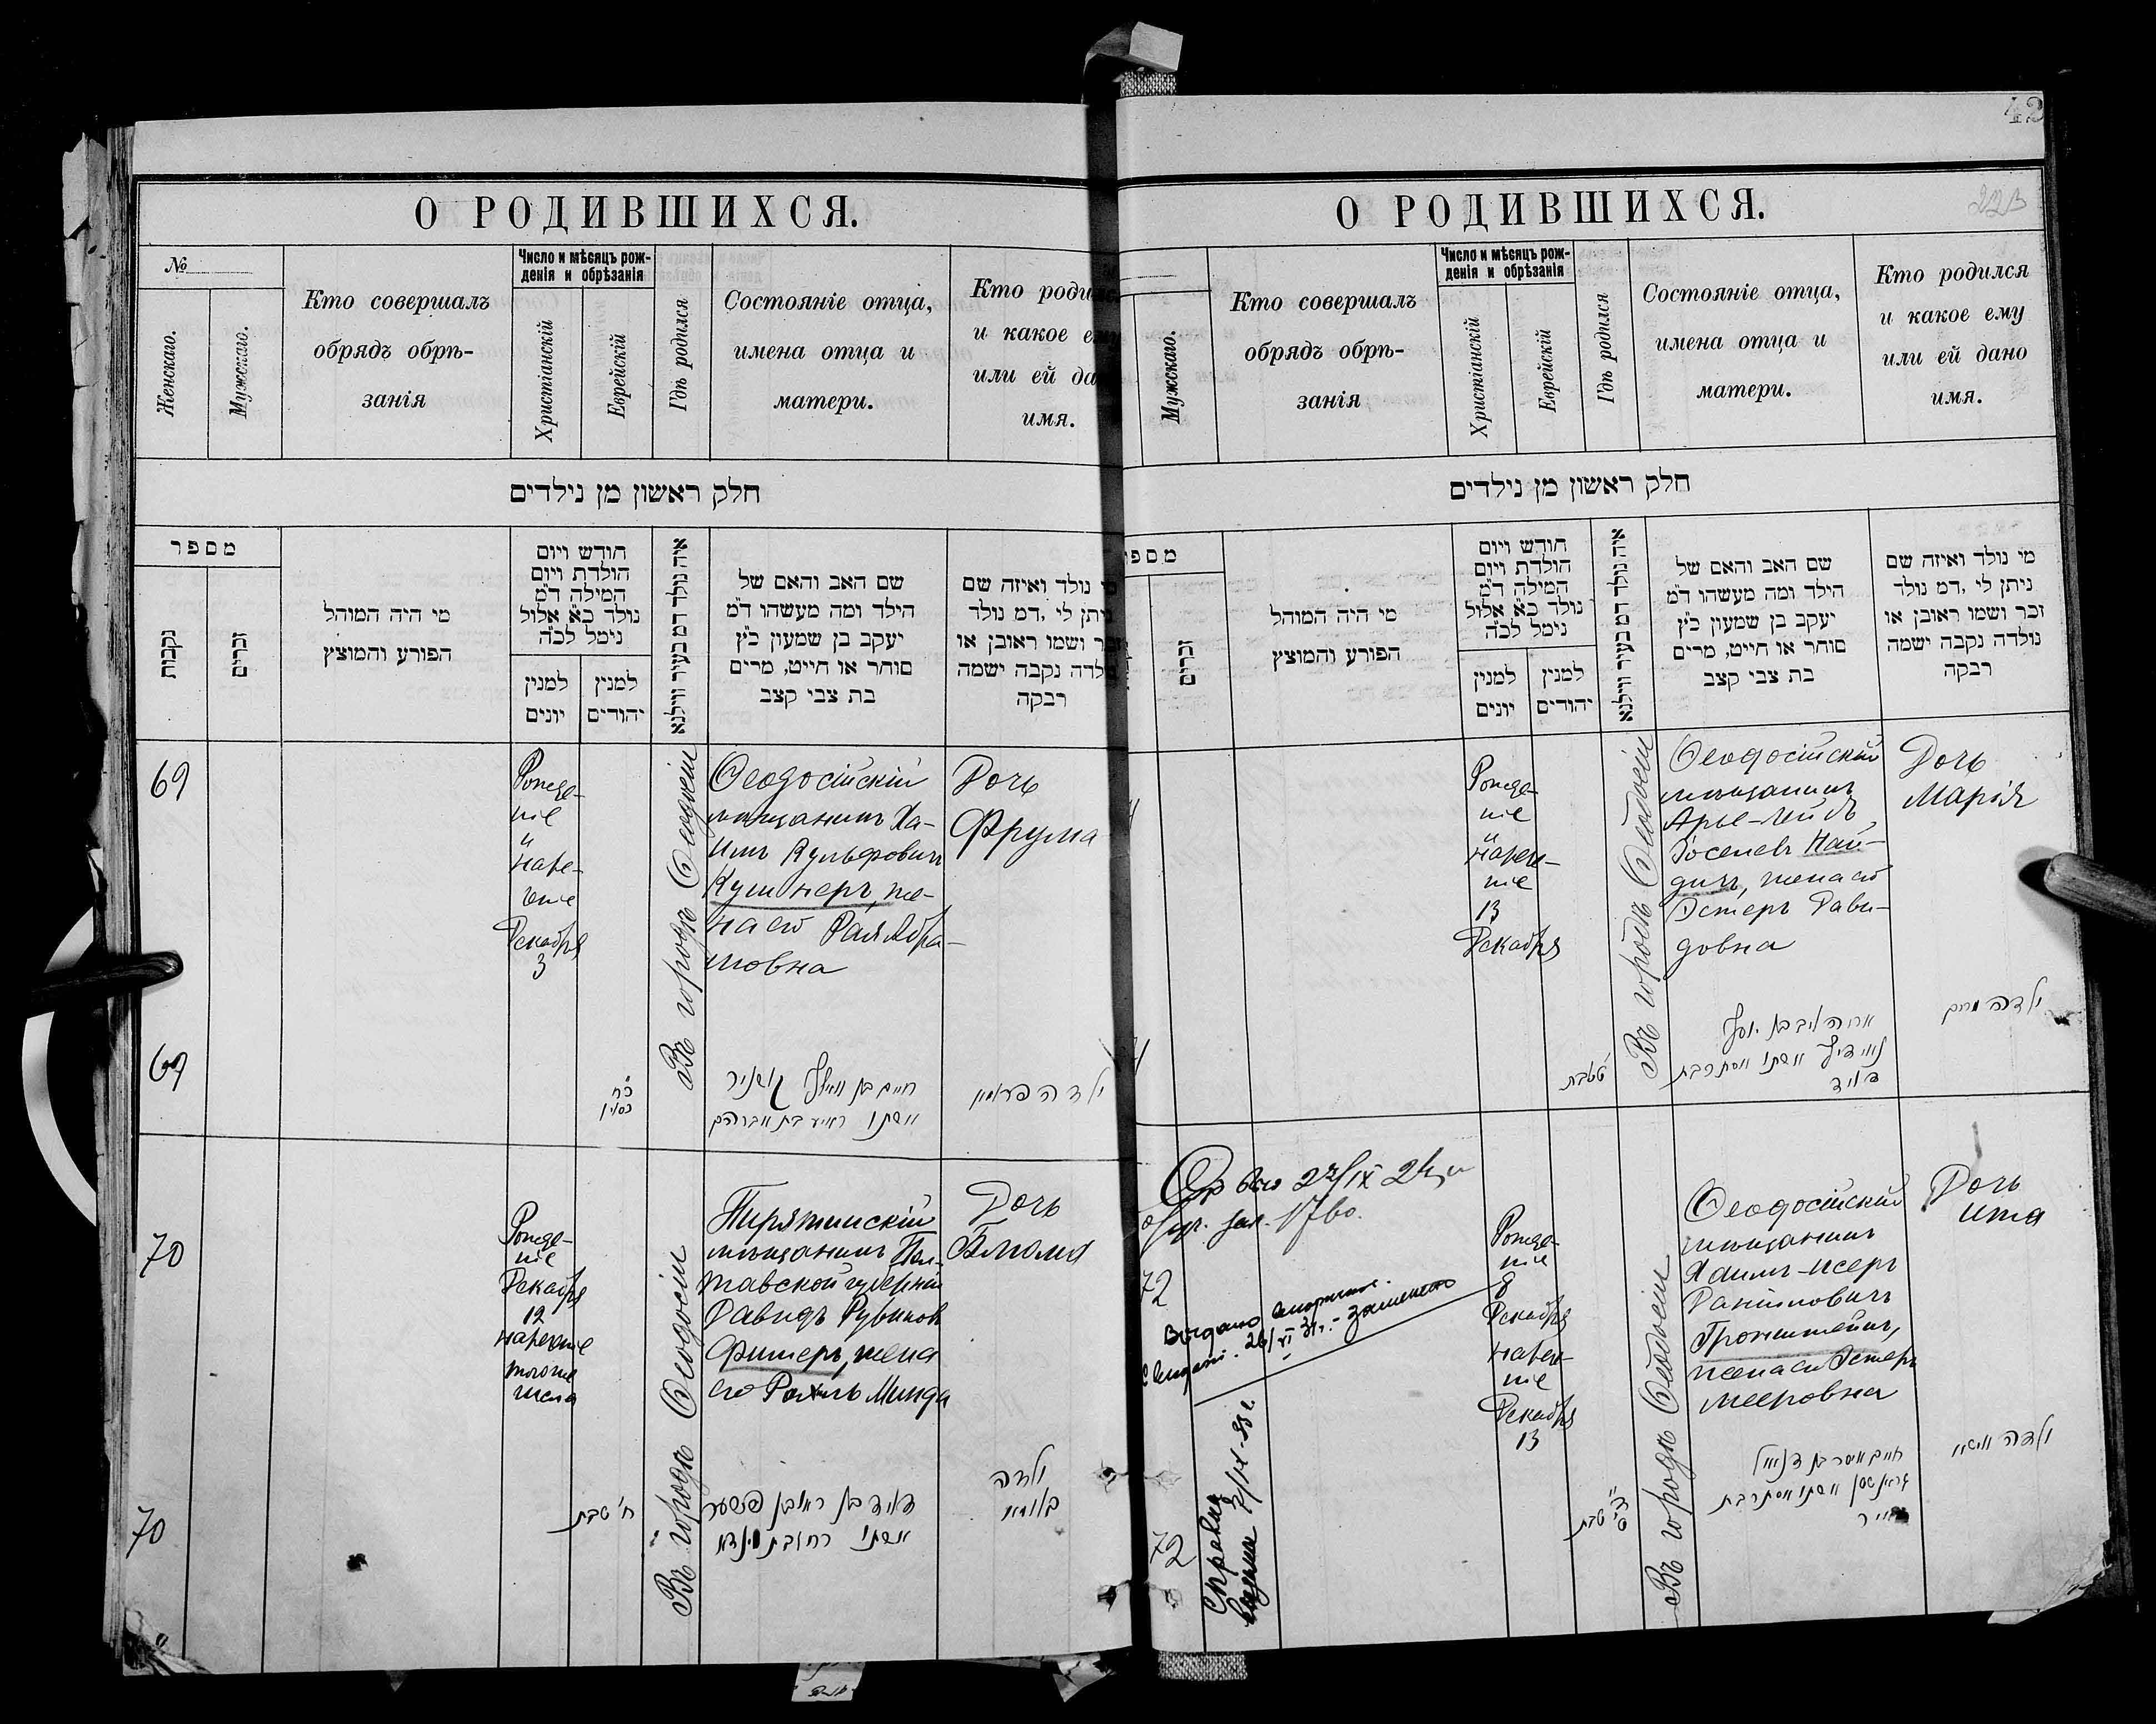 О РОДИВШИХСЯ.
№
Женскаго.
Мужскаго.
Кто совершалъ
обрядъ обрѣ-
занія
Число и мѣсяцъ рож-
денія и обрѣзанія
Христіанскій
Еврейскій
Гдѣ родился
Состояніе отца,
имена отца и
матери.
Кто роди
и какое е
или ей да
имя.
חלק ראשון מן נילדים
מספר
נקבות
זכרים
מי היה המוהל
הפורע והמוצץ
חודש ויום
הולדת ויום
המילה ד״מ
נולד כ״א אלול
נימל לכ״ה
למנין
יונים
למנין
יהודים
איה נולד דמ בעיר ווילנא
שם האב והאם של
הילד ומה מעשהו ד״מ
יעקב בן שמעון כ״ץ
סוחר או חייט, מרים
בת צבי קצב
מי נולד ואיזה שם
ניתן לי ,דמ נולד
זכר ושמו ראובן או
נולדה נקבה ישמה
רבקה
69
Рожде-
ніе
и
наре-
ченіе
Декабря
3
Въ городѣ Ѳеодосіи
Ѳеодосійскій
мѣщанинъ Ха-
имъ Вульфовичъ
Кушнеръ, же-
на его Рая Абра-
мовна
Дочь
Фрума
69
כ״ח
כסלו
חיים בן וואלף קושניר
אשתו ראיע בת אברהם
ילדה פראמא
70
Рожде-
ніе
Декабря
12
нареченіе
того же
числа
Въ городѣ Ѳеодосіи
Пирятинскій
мѣщанинъ Пол-
тавской губерніи
Давидъ Рувиновъ
Фишеръ, жена
его Рахиль Минда
Дочь
Блюма
70
ח׳ טבת
דוד בן ראובן פישער
אשתו רחל בת מינדא
ילדה
בלומא
42
О РОДИВШИХСЯ.
Мужскаго.
Кто совершалъ
обрядъ обрѣ-
занія
Число и мѣсяцъ рож-
денія и обрѣзанія
Христіанскій
Еврейскій
Гдѣ родился
Состояніе отца,
имена отца и
матери.
Кто родился
и какое ему
или ей дано
имя.
חלק ראשון מן נילדים
מספ
זכרים
מי היה המוהל
הפורע והמוצץ
חודש ויום
הולדת ויום
המילה ד״מ
נולד כ״א אלול
נימל לכ״ה
למנין
יונים
למנין
יהודים
איה נולד דמ בעיר ווילנא
שם האב והאם של
הילד ומה מעשהו ד״מ
יעקב בן שמעון כ״ץ
סוחר או חייט, מרים
בת צבי קצב
מי נולד ואיזה שם
ניתן לי ,דמ נולד
זכר ושמו ראובן או
נולדה נקבה ישמה
רבקה
Рожде-
ніе
и
нарече-
ніе
13
Декабря
Въ городѣ Ѳеодосіи
Ѳеодосійскій
мѣщанинъ
Арье-Лейбъ
Іоселевъ Най-
дичъ, жена его
Эстеръ Дави-
довна
Дочь
Марія
ט׳ טבת
אריה ליב בן יוסף
נאידיץ אשתו אסתר בת
דוד
ילדה מרים
27/IX 24
72
Выдано
26/VI 31г.
Справка
выдана
Рожде-
ніе
8
Декабря
нарече-
ніе
Декабря
13
Въ городѣ Ѳеодосіи
Ѳеодосійскій
мѣщанинъ
Хаимъ-Исеръ
Даніиловичъ
Гронштейнъ,
жена его Эстеръ
Мееровна
Дочь
Ита
72
טבת
חיים איסר בן דניאל
אשתו אסתר בת
מאיר
ילדה